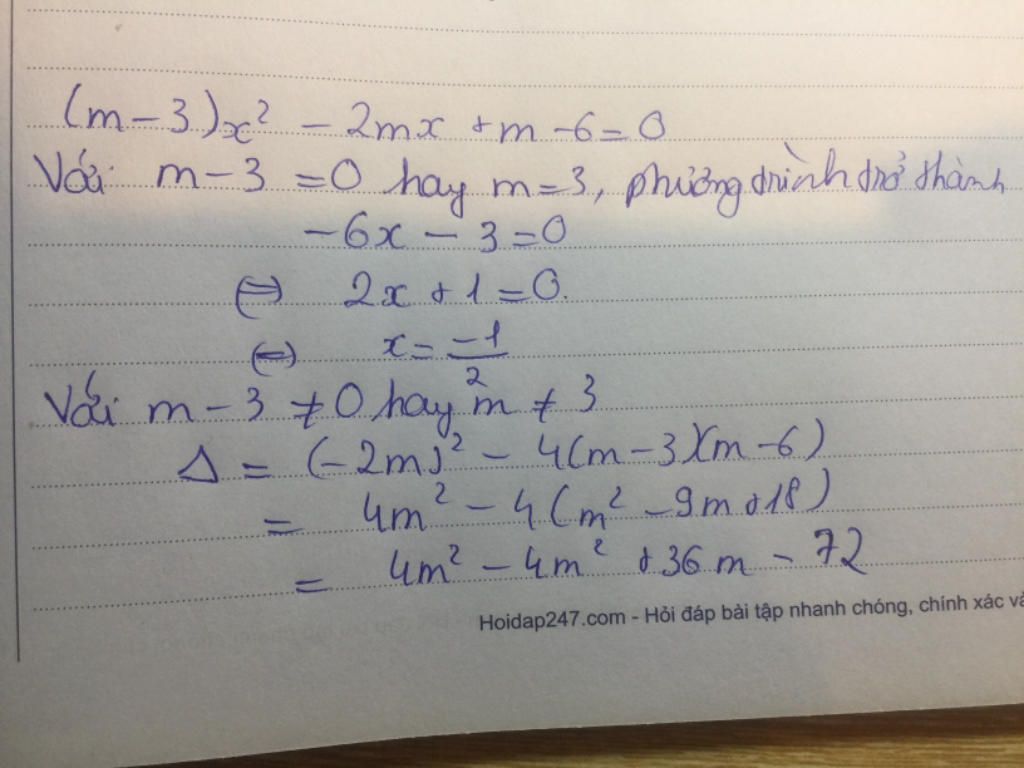 (m-3)x² - 2mx + m - 6 = 0
Với m - 3 = 0 hay m = 3, phương trình trở thành
-6x - 3 = 0
(=) 2x + 1 = 0.
(=) x = -1/2
Với m - 3 ≠ 0 hay m ≠ 3
Δ = (-2m)² - 4(m-3)(m-6)
= 4m² - 4(m² - 9m + 18)
= 4m² - 4m² + 36m - 72
Hoidap247.com - Hỏi đáp bài tập nhanh chóng, chính xác và